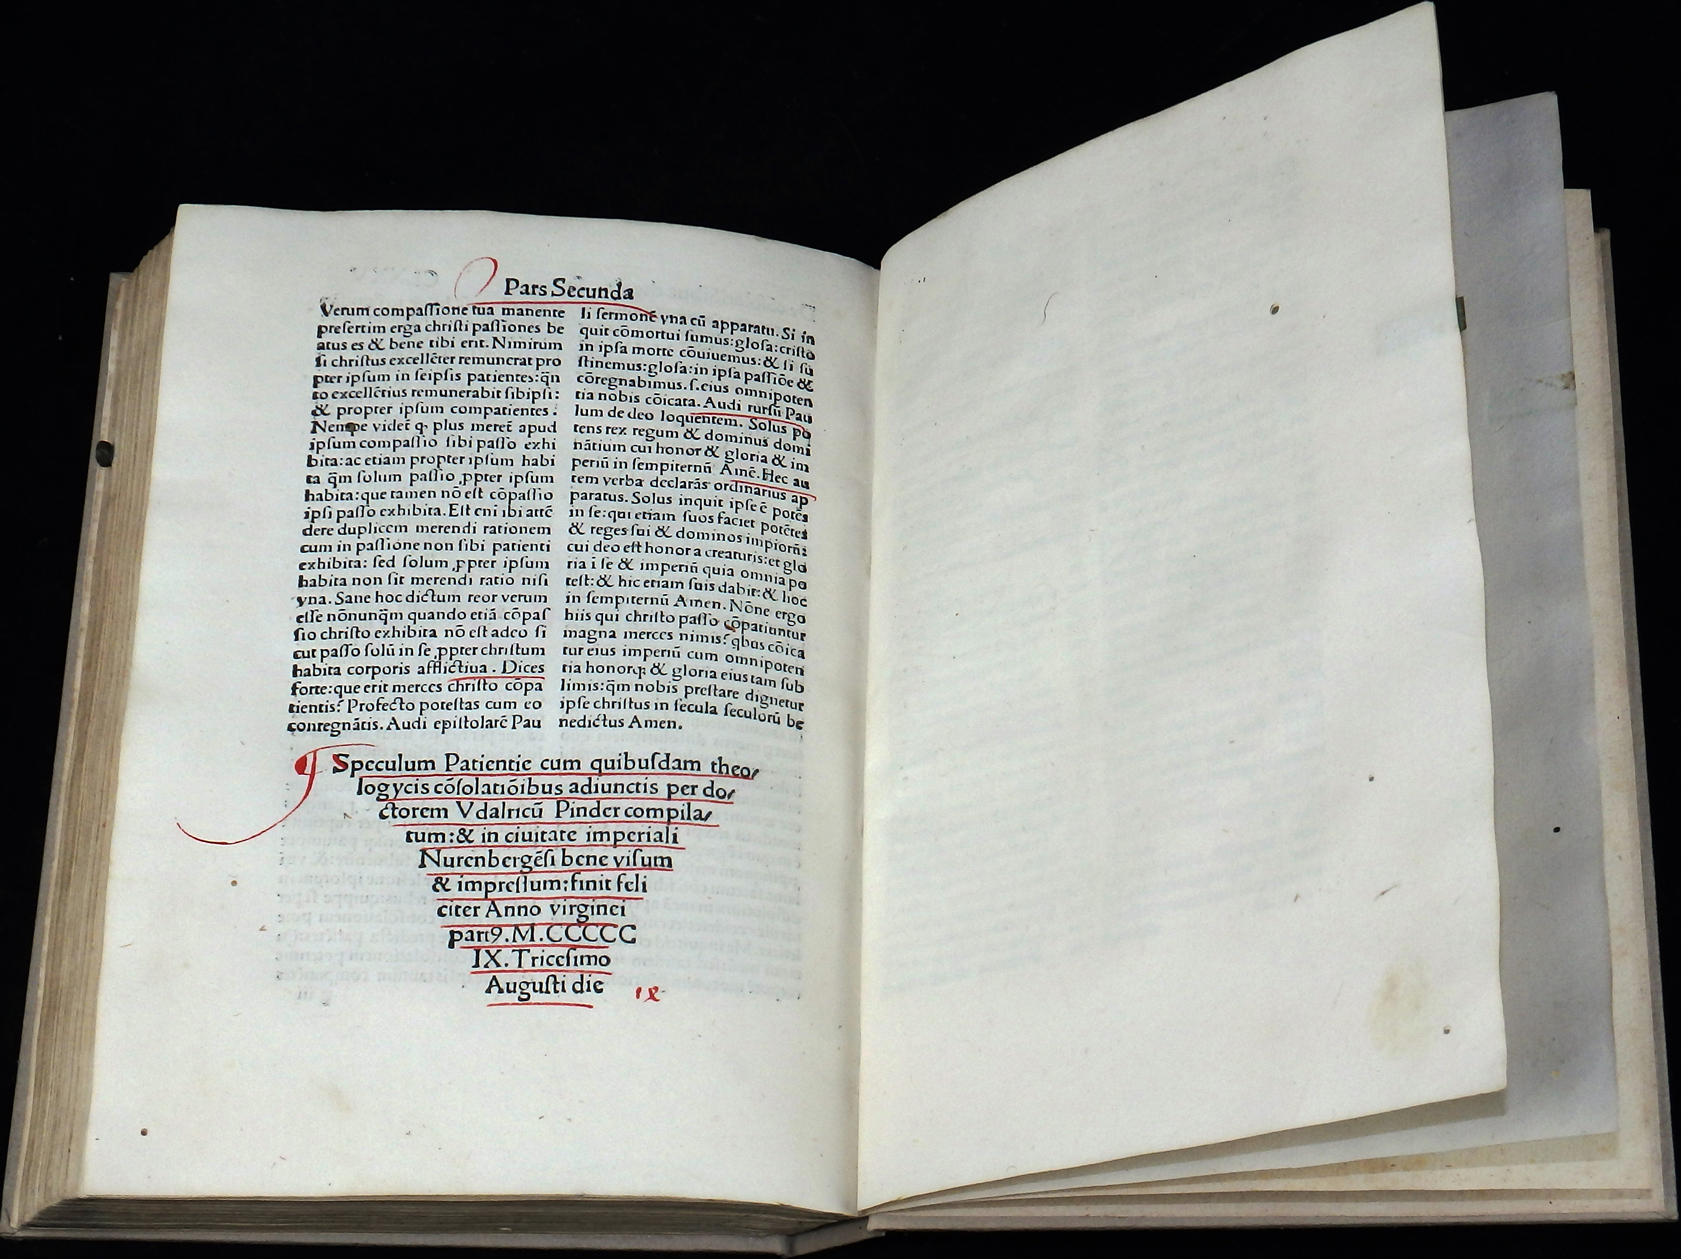 Pars Secunda
Verum compaſſione tua manente
preſertim erga chriſti paſſiones be
atus es & bene tibi erit. Nimirum
ſi chriſtus excellēter remunerat pro
pter ipſum in ſeipſis patientes: q̄n
to excellētius remunerabit ſibipſi:
& propter ipſum compatientes:
Nempe videt̄ ꝙ plus meret̄ apud
ipſum compaſſio ſibi paſſo exhi
bita: ac etiam propter ipſum habi
ta q̄m ſolum paſſio ꝓpter ipſum
habita: que tamen nō eſt cōpaſſio
ipſi paſſo exhibita. Eſt eni ibi attē
dere duplicem merendi rationem
cum in paſſione non ſibi patienti
exhibita: ſed ſolum ꝓpter ipſum
habita non ſit merendi ratio niſi
vna. Sane hoc dictum reor verum
eſſe nōnunq̄m quando etiā cōpaſ
ſio chriſto exhibita nō eſt adeo ſi
cut paſſo ſolū in ſe ꝓpter chriſtum
habita corporis afflictiua. Dices
forte: que erit merces chriſto cōpa
tientis? Profecto poteſtas cum eo
conregnātis. Audi epiſtolarē Pau
li ſermonē vna cū apparatu. Si in
quit cōmortui ſumus: gloſa: criſto
in ipſa morte cōuiuemus: & ſi ſu
ſtinemus: gloſa: in ipſa paſſiōe &
cōregnabimus. ſ. eius omnipoten
tia nobis cōicata. Audi rurſū Pau
lum de deo loquentem. Solus po
tens rex regum & dominus domi
nātium cui honor & gloria & im
periū in ſempiternū Amē. Hec au
tem verba declarās ordinarius ap
paratus. Solus inquit ipſe ē potēs
in ſe: qui etiam ſuos faciet potētes
& reges ſui & dominos impiorū:
cui deo eſt honor a creaturis: et glo
ria ī ſe & imperiū quia omnia po
teſt: & hic etiam ſuis dabit: & hoc
in ſempiternū Amen. Nōne ergo
hiis qui chriſto paſſo cōpatiuntur
magna merces nimis? qbus cōica
tur eius imperiū cum omnipoten
tia honorqꝫ & gloria eius tam ſub
limis: q̄m nobis preſtare dignetur
ipſe chriſtus in ſecula ſeculorū be
nedictus Amen.
Speculum Patientie cum quibuſdam theo⸗
logycis cōſolatiōibus adiunctis per do⸗
ctorem Vdalricū Pinder compila⸗
tum: & in ciuitate imperiali
Nurenbergēſi bene viſum
& impreſſum: finit feli
citer Anno virginei
part9. M.CCCCC
IX. Triceſimo
Auguſti die